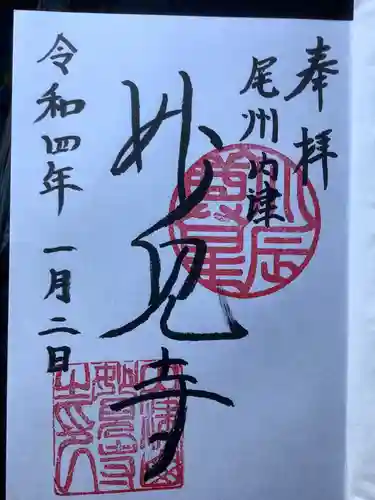 奉拝
尾州内津
妙見寺
令和四年 一月二日